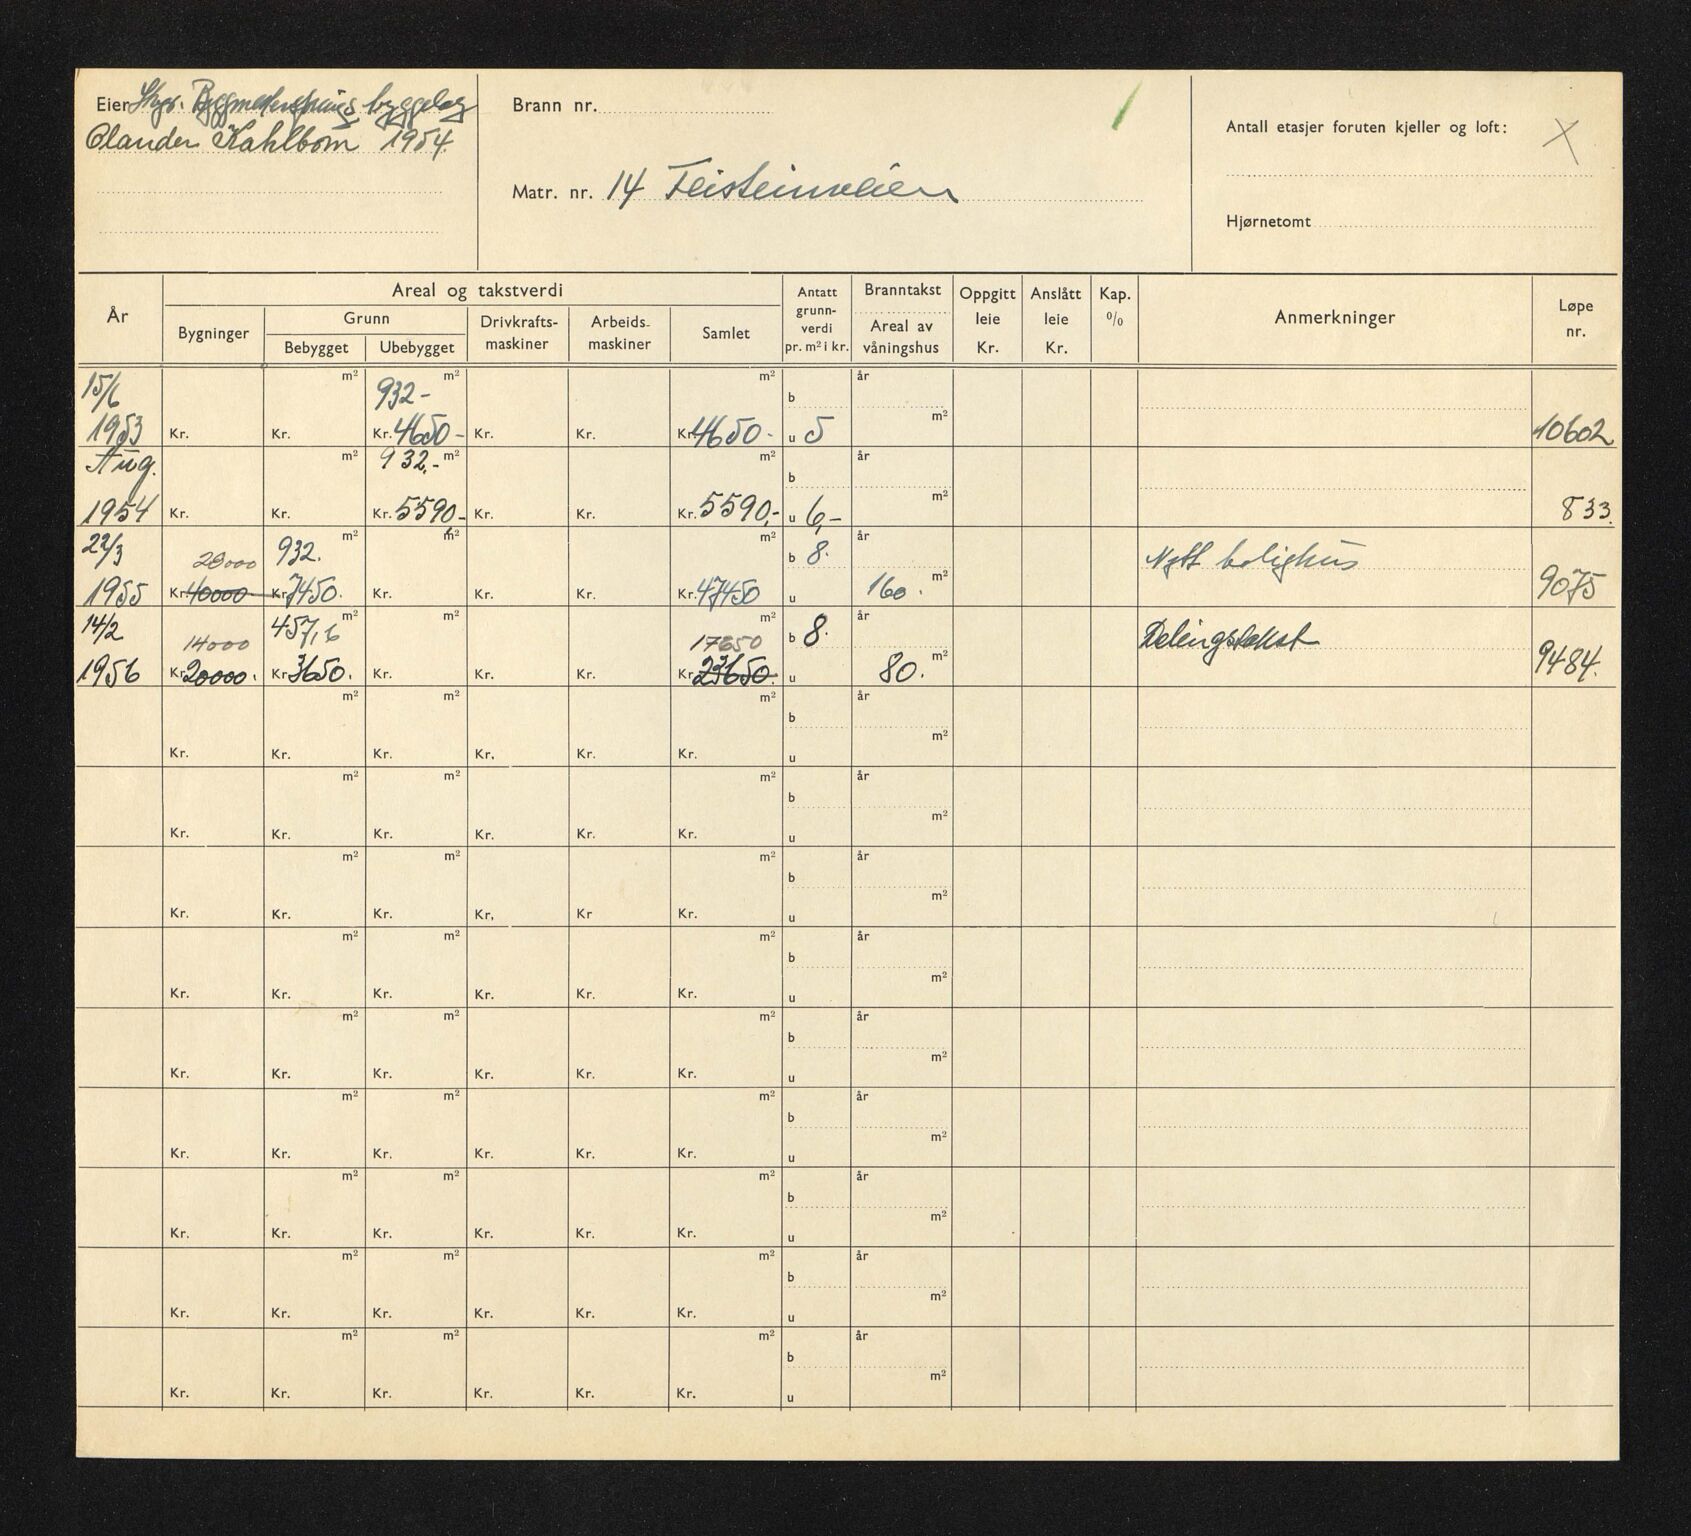 Eier Stvgr. byggelag
Olander Kahlbom 1954.
Brann nr.
Matr. nr. 14 Feisteinveien
Antall etasjer foruten kjeller og loft: X
Hjørnetomt
År
Areal og takstverdi
Bygninger
Grunn
Bebygget
Ubebygget
Drivkrafts-
maskiner
Arbeids-
maskiner
Samlet
Antatt
grunn-
verdi
pr. m² i kr.
Branntakst
Areal av
våningshus
Oppgitt
leie
Kr.
Anslått
leie
Kr.
Kap.
%
Anmerkninger
Løpe
nr.
15/6 m² 932- m² m² b år
1953 Kr. Kr. Kr. 4650- Kr. Kr. Kr. 4650- u 5 m² 10602
Aug. m² 932,- m² m² b år
1954 Kr. Kr. Kr. 5590- Kr. Kr. Kr. 5590,- u 6,- m² 833.
22/3 28000 932. m² m² m² b 8. år Nytt bolighus
1955 Kr. 40000 Kr. 7450. Kr. Kr. Kr. Kr. 47450 u 160. m² 9075
14/2 14000 457,6 m² m² 17650 m² b 8. år Delingstakst
1956 Kr. 20000. Kr. 3650. Kr. Kr. Kr. Kr. 23650. u 80. m² 9484.
m² m² m² b år
Kr. Kr. Kr. Kr. Kr. Kr. u m²
m² m² m² b år
Kr. Kr. Kr. Kr. Kr. Kr. u m²
m² m² m² b år
Kr. Kr. Kr. Kr, Kr Kr. u m²
m² m² m² b år
Kr. Kr. Kr. Kr. Kr. Kr. u m²
m² m² m² b år
Kr. Kr. Kr. Kr. Kr. Kr. u m²
m² m² m² b år
Kr. Kr. Kr. Kr. Kr. Kr. u m²
m² m² m² b år
Kr. Kr. Kr. Kr. Kr. Kr. u m²
m² m² m² b år
Kr. Kr. Kr. Kr. Kr. Kr. u m²
m² m² m² b år
Kr. Kr. Kr. Kr. Kr. Kr. u m²